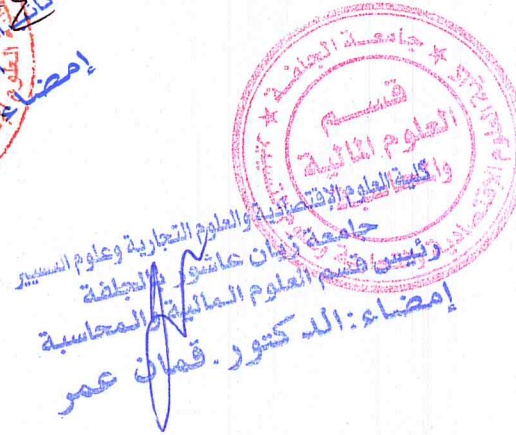 إمضاء
جامعة الجلفة
قسم
العلوم المالية
كلية العلوم الإقتصادية والعلوم التجارية وعلوم التسيير
جامعة زيان عاشور بالجلفة
رئيس قسم العلوم المالية والمحاسبة
إمضاء: الدكتور. قمان عمر